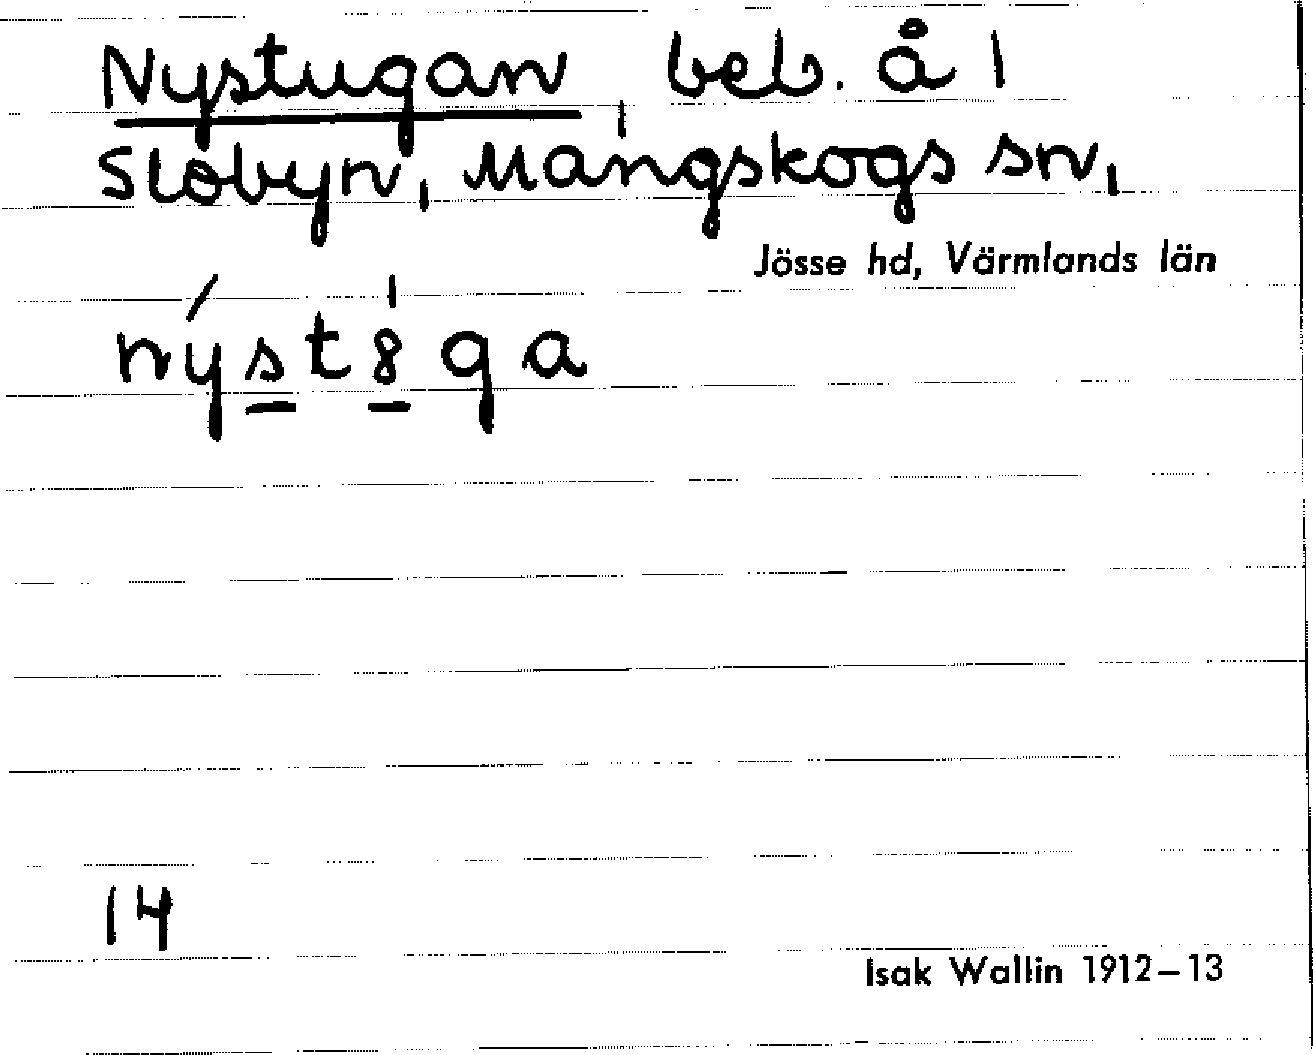 Nystugan, beb. å 1
Slobyn, Mangskogs sn,
Jösse hd, Värmlands län
nýst8̍ga
14
Isak Wallin 1912–13